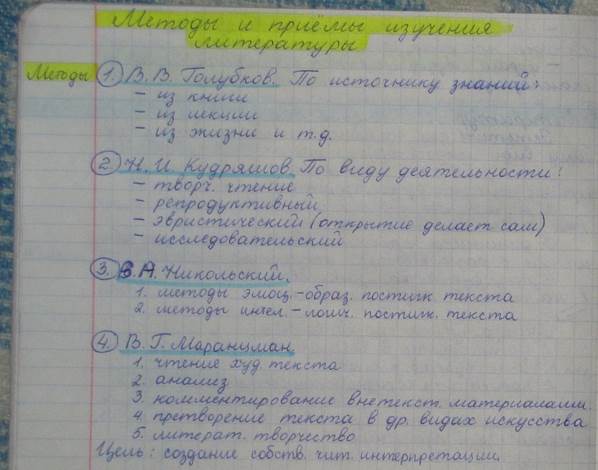 Методы и приёмы изучения
литературы
Методы 1. В. В. Голубков. По источнику знаний:
- из книги
- из лекции
- из жизни и т.д.
2. Н. И. Кудряшов. По виду деятельности:
- творч. чтение
- репродуктивный
- эвристический (открытие делает сам)
- исследовательский
3. В.А. Никольский.
1. методы эмоц.-образ. постиж. текста
2. методы интел.-логич. постиж. текста
4. В. Г. Маранцман
1. чтение худ. текста
2. анализ
3. комментирование внетекст. материалами.
4. претворение текста в др. видах искусства
5. литерат. творчество
Цель: создание собств. чит. интерпретации.